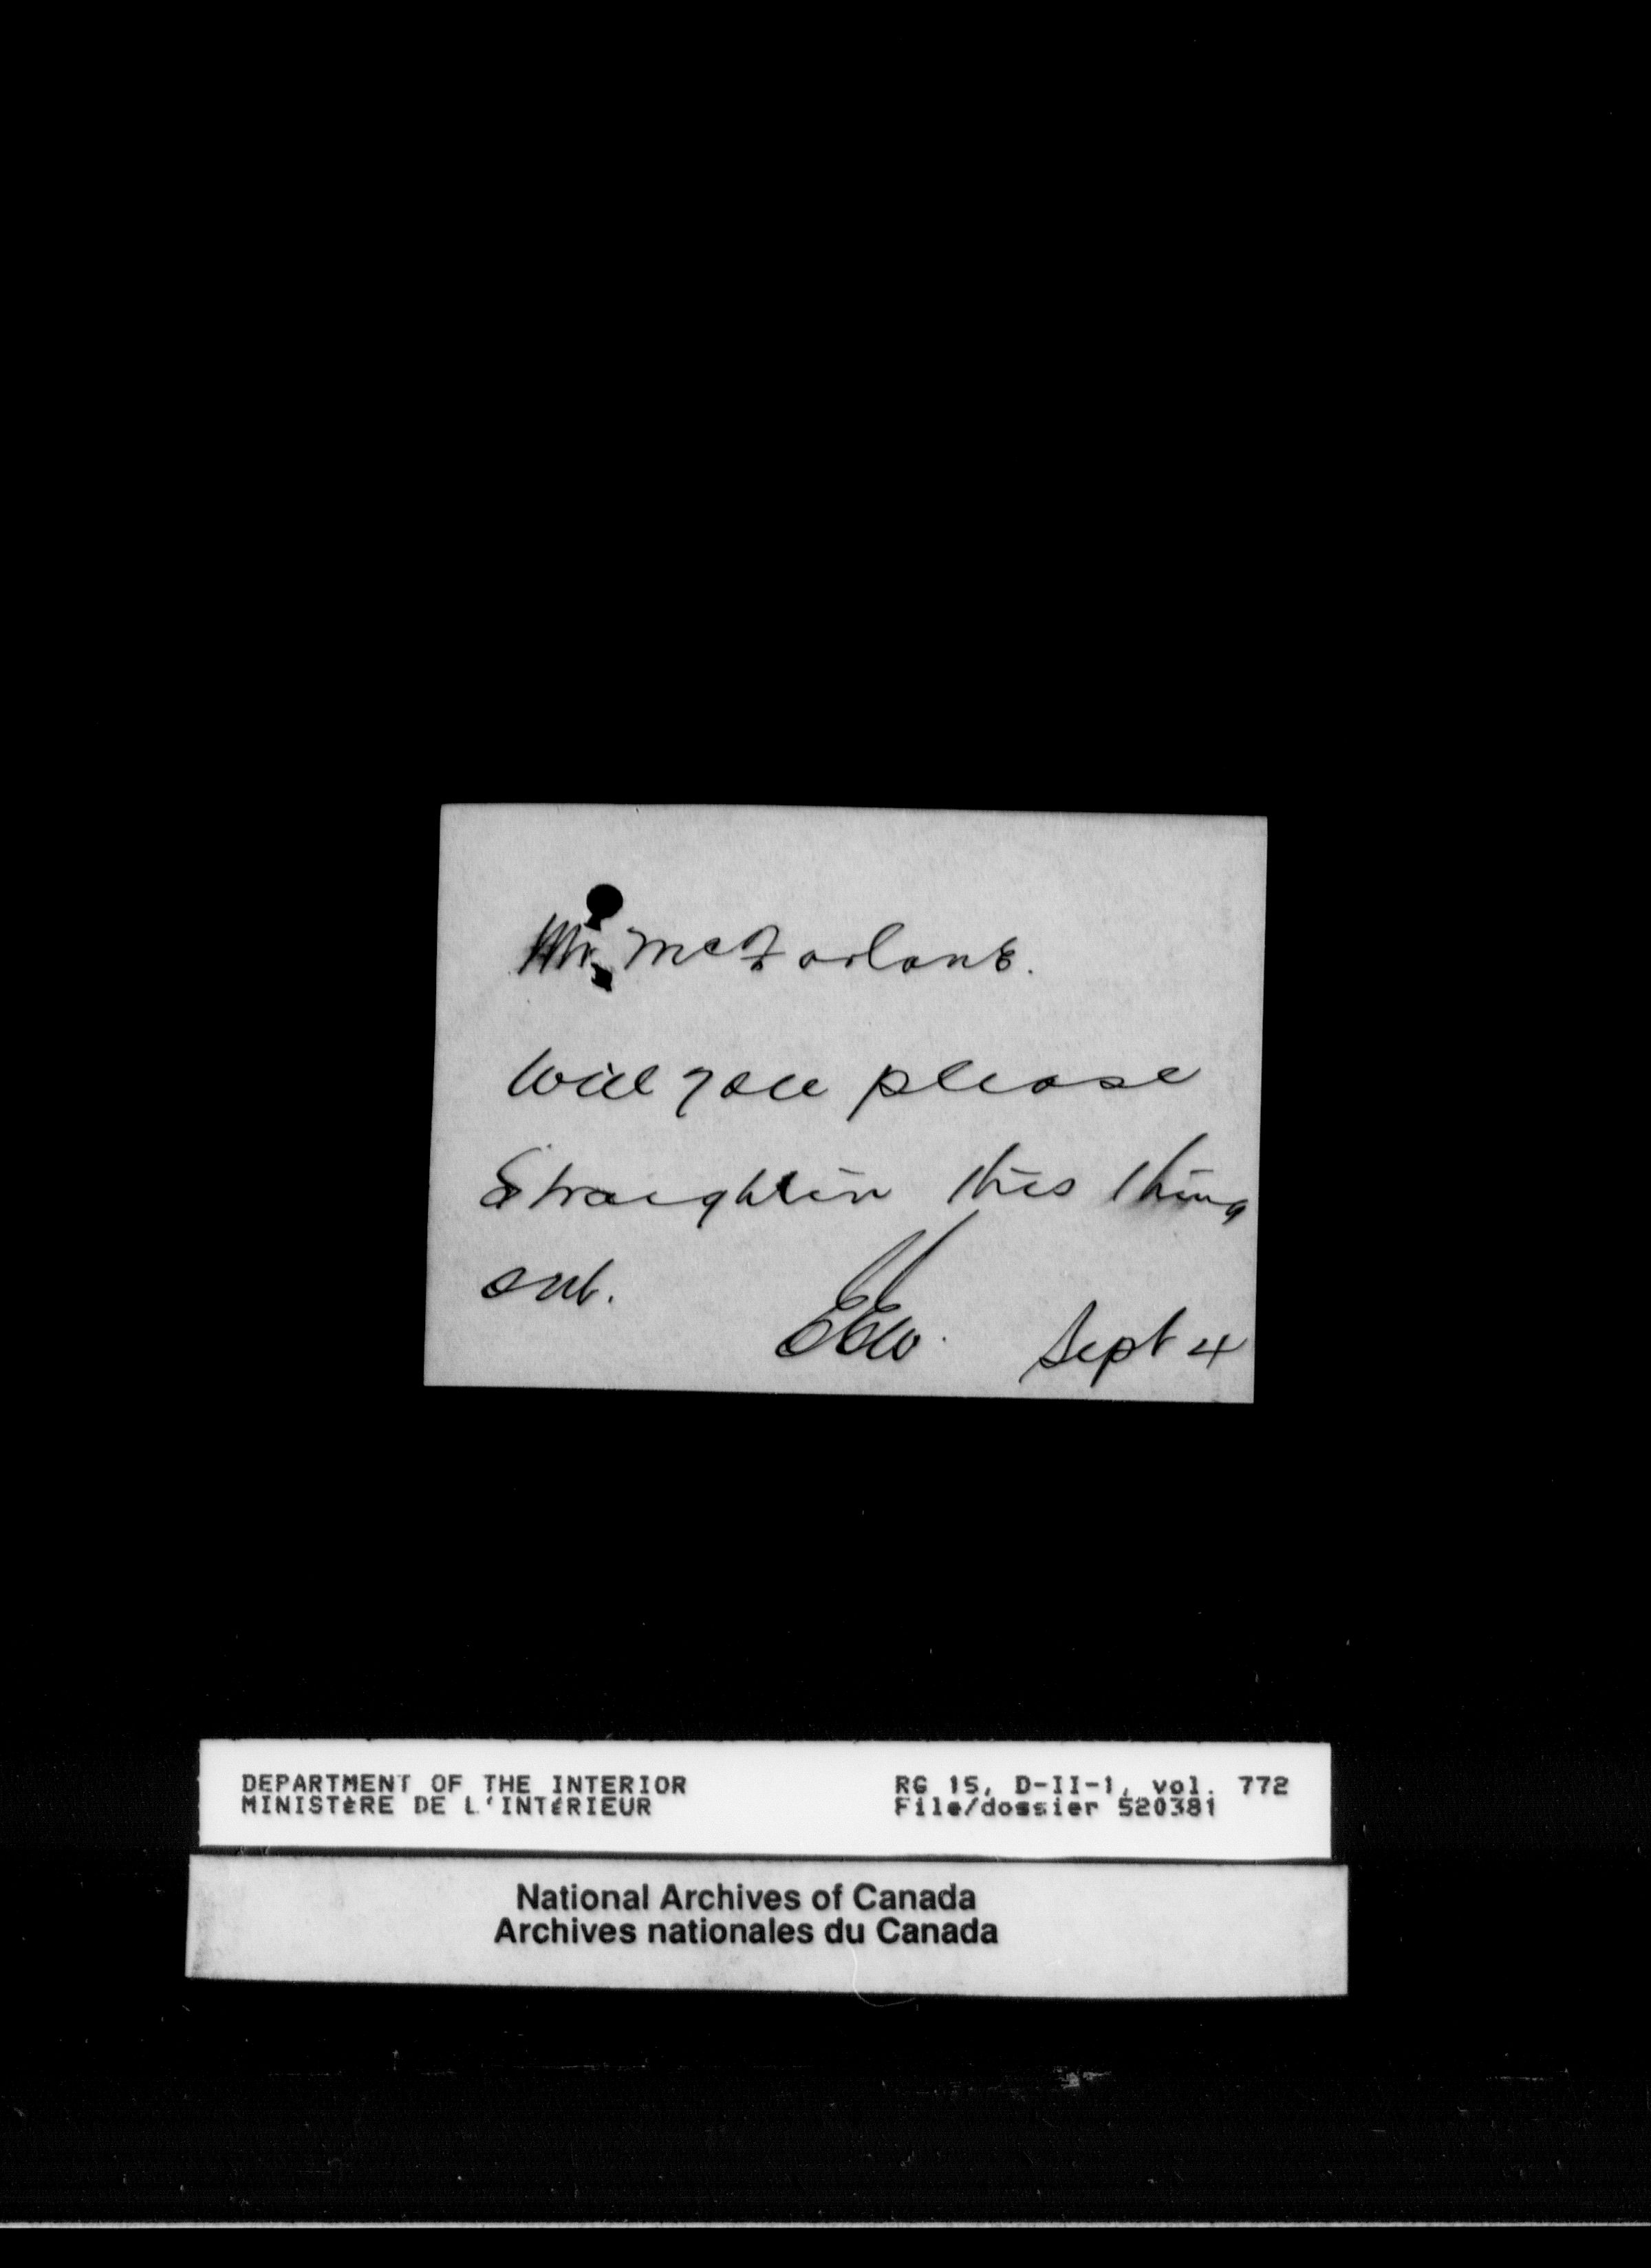 Mr. McFarlane.
Will you please
Straighten this thing
out.
Sept 4
DEPARTMENT OF THE INTERIOR
MINISTÈRE DE L'INTÉRIEUR
RG 15, D-II-1, vol. 772
File/dossier 520381
National Archives of Canada
Archives nationales du Canada